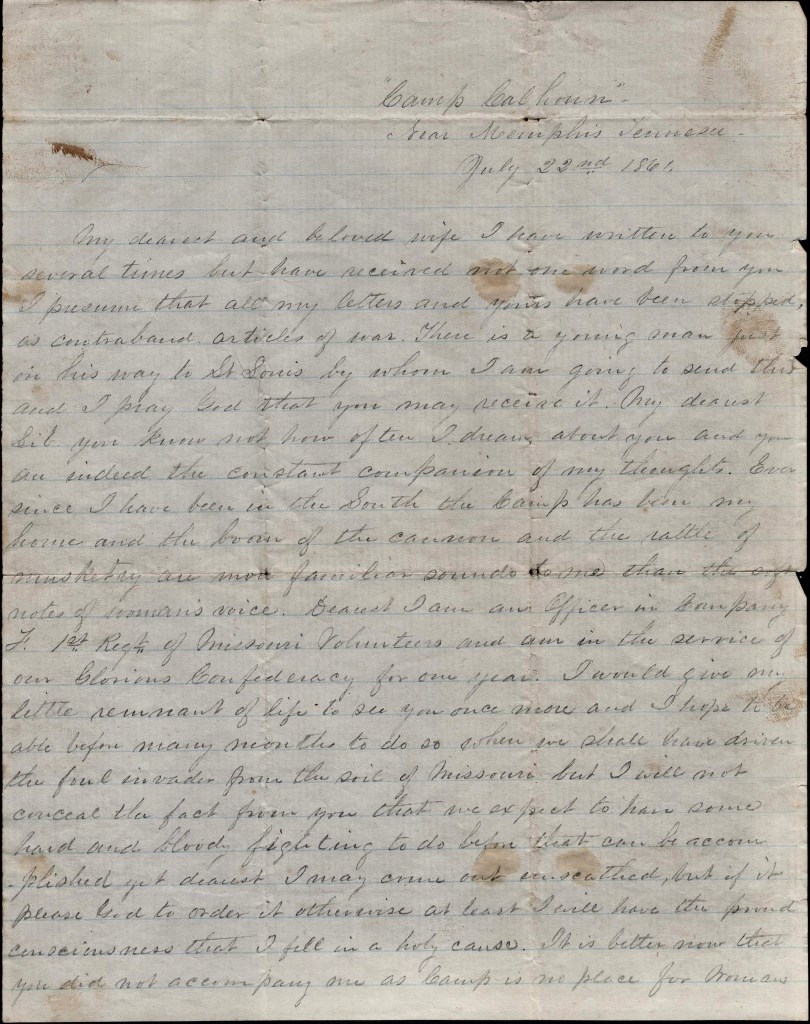 "Camp Calhoun"
Near Memphis Tennessee
July 22nd 1861.
My dearest and beloved wife I have written to you
several times but have received not one word from you
I presume that all my letters and yours have been stopped,
as contraband articles of war. There is a young man just
on his way to St Louis by whom I am going to send this
and I pray God that you may receive it. My dearest
you know not how often I dream about you and you
are indeed the constant companion of my thoughts. Ever
since I have been in the South the Camp has been my
home and the boom of the cannon and the rattle of
musketry are more familiar sounds to me than the soft
notes of woman's voice. Dearest I am an Officer in Company
F. 1st Regt of Missouri Volunteers and am in the service of
our Glorious Confederacy for one year. I would give my
little remnant of life to see you once more and I hope to be
able before many months to do so when we shall have driven
the foul invader from the soil of Missouri but I will not
conceal the fact from you that we expect to have some
hard and bloody fighting to do before that can be accom
-plished yet dearest I may come out unscathed, but if it
please God to order it otherwise at least I will have the proud
consciousness that I fell in a holy cause. It is better now that
you did not accompany me as Camp is no place for Woman